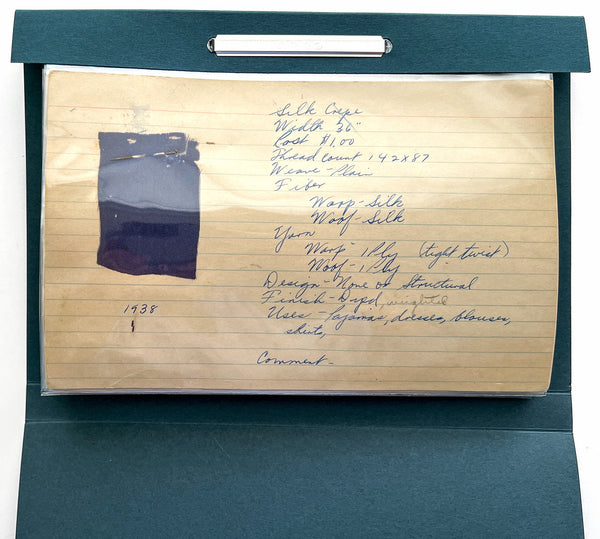 Silk Crepe
Width 36"
Cost $1.00
Thread Count 142x87
Weave - Plain
Fiber
Warp - Silk
Woof - Silk
Yarn
Warp - 1 Ply (tight twist)
Woof - 1 Ply
Design - None or Structural
Finish - Dyed, weighted
Uses - Pajamas, dresses, blouses,
shirts,
1938
Comment -